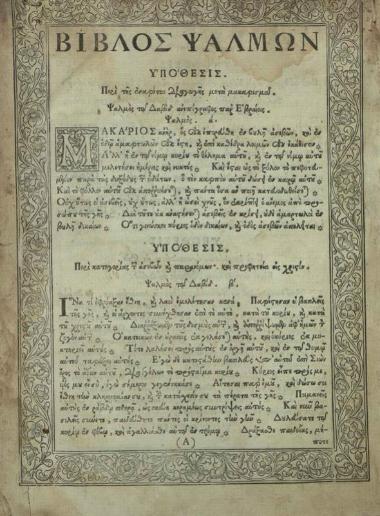 ΒΙΒΛΟΣ ΨΑΛΜΩΝ
ΥΠΟΘΕΣΙΣ.
Περὶ τῆς
μετὰ μακαρισμοῦ.
Ψαλμὸς τῷ Δαβὶδ ἀνεπίγραφος παρ' Ἑβραίοις.
Ψαλμὸς. α.
ΜΑΚΑΡΙΟΣ ἀνὴρ, ὃς οὐκ ἐπορεύθη ἐν βουλῇ ἀσεβῶν, καὶ ἐν
ὁδῷ ἁμαρτωλῶν οὐκ ἔστη, καὶ ἐπὶ καθέδρα λοιμῶν οὐκ ἐκάθισεν
Ἀλλ' ἢ ἐν τῷ νόμῳ κυρίου τὸ θέλημα αὐτοῦ, καὶ ἐν τῷ νόμῳ αὐτοῦ
μελετήσει ἡμέρας καὶ νυκτός
Καὶ ἔσται ὡς τὸ ξύλον τὸ πεφυτευ-
μένον παρὰ τὰς διεξόδους τῶν ὑδάτων, ὃ τὸν καρπὸν αὐτοῦ δώσει ἐν καιρῷ αὐτοῦ
Καὶ τὸ φύλλον αὐτοῦ οὐκ ἀποῤῥυήσεται, καὶ πάντα ὅσα ἂν ποιῇ κατευοδωθήσεται
Οὐχ οὕτως οἱ ἀσεβεῖς, οὐχ οὕτως, ἀλλ' ἢ ὡσεὶ χνοῦς, ὃν ἐκρίπτει ὁ ἄνεμος ἀπὸ προ-
σώπου τῆς γῆς
Διὰ τοῦτο οὐκ ἀναστήσονται ἀσεβεῖς ἐν κρίσει, οὐδὲ ἁμαρτωλοὶ ἐν
βουλῇ δικαίων
Ὅτι γινώσκει κύριος ὁδὸν δικαίων, καὶ ὁδὸς ἀσεβῶν ἀπολεῖται
ΥΠΟΘΕΣΙΣ.
Ψαλμὸς τῷ Δαβὶδ. β.
ἹΝα τί ἐφρύαξαν ἔθνη, καὶ λαοὶ ἐμελέτησαν κενά
Παρέστησαν οἱ βασιλεῖς
τῆς γῆς, καὶ οἱ ἄρχοντες συνήχθησαν ἐπὶ τὸ αὐτό, κατὰ τοῦ κυρίου, καὶ κατὰ
τοῦ χριστοῦ αὐτοῦ
Διαῤῥήξωμεν τοὺς δεσμοὺς αὐτῶν, καὶ ἀποῤῥίψωμεν ἀφ' ἡμῶν τὸν
ζυγὸν αὐτῶν
Ὁ κατοικῶν ἐν οὐρανοῖς ἐκγελάσεται αὐτοὺς, καὶ ὁ κύριος ἐκ-
μυκτηριεῖ αὐτούς
Τότε λαλήσει πρὸς αὐτοὺς ἐν ὀργῇ αὐτοῦ, καὶ ἐν τῷ θυμῷ
αὐτοῦ ταράξει αὐτούς
Ἐγὼ δὲ κατεστάθην βασιλεὺς ὑπ' αὐτοῦ ἐπὶ Σιὼν
ὄρος τὸ ἅγιον αὐτοῦ, διαγγέλλων τὸ πρόσταγμα κυρίου
Κύριος εἶπε πρός με,
υἱός μου εἶ σύ, ἐγὼ σήμερον γεγέννηκά σε
Αἴτησαι παρ' ἐμοῦ, καὶ δώσω σοι
ἔθνη τὴν κληρονομίαν σου, καὶ τὴν κατάσχεσίν σου τὰ πέρατα τῆς γῆς
Ποιμανεῖς
αὐτοὺς ἐν ῥάβδῳ σιδηρᾷ, ὡς σκεύη κεραμέως συντρίψεις αὐτούς
Καὶ νῦν βα-
σιλεῖς σύνετε, παιδεύθητε πάντες οἱ κρίνοντες τὴν γῆν
Δουλεύσατε τῷ
κυρίῳ ἐν φόβῳ, καὶ ἀγαλλιᾶσθε αὐτῷ ἐν τρόμῳ
Δράξασθε παιδείας, μή-
(A)
ποτε